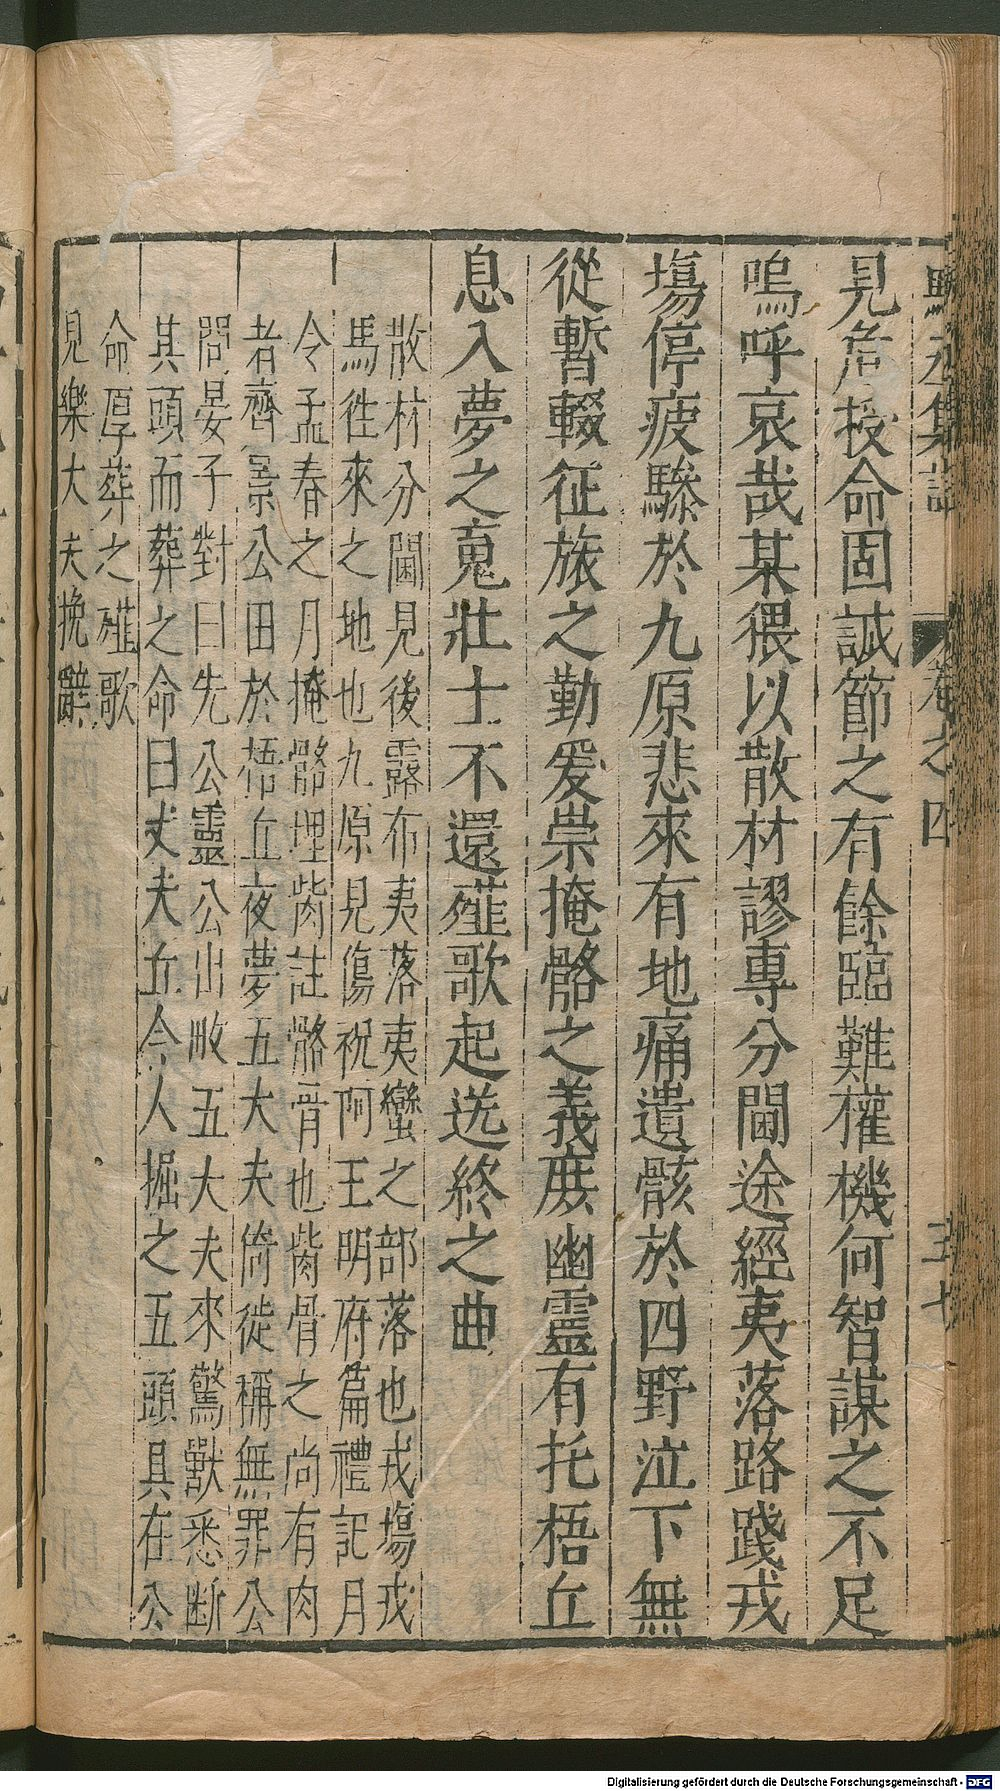 見危授命固誠節之有餘臨難權機何智謀之不足
嗚呼哀哉某猥以散材謬專分閫途經夷落路踐戎
塲停疲驂於九原悲來有地痛遺骸於四野泣下無
從暫輟征旅之勤爰崇掩骼之義庶幽靈有托梧丘
息入夢之䰟壯士不還薤歌起送終之曲
散材分閫見後露布夷落夷蠻之部落也戎塲戎
馬徃來之地也九原見傷祝阿王明府篇禮記月
令孟春之月掩骼埋胔註骼骨也胔骨之尚有肉
者齊景公田於梧丘夜夢五大夫倚徙稱無罪公
問晏子對曰先公靈公出畋五大夫來驚獸悉断
其頭而葬之命曰丈夫丘令人掘之五頭具在公
命厚葬之薤歌
見樂大夫挽辭
卷之四
Digitalisierung gefördert durch die Deutsche Forschungsgemeinschaft - DFG